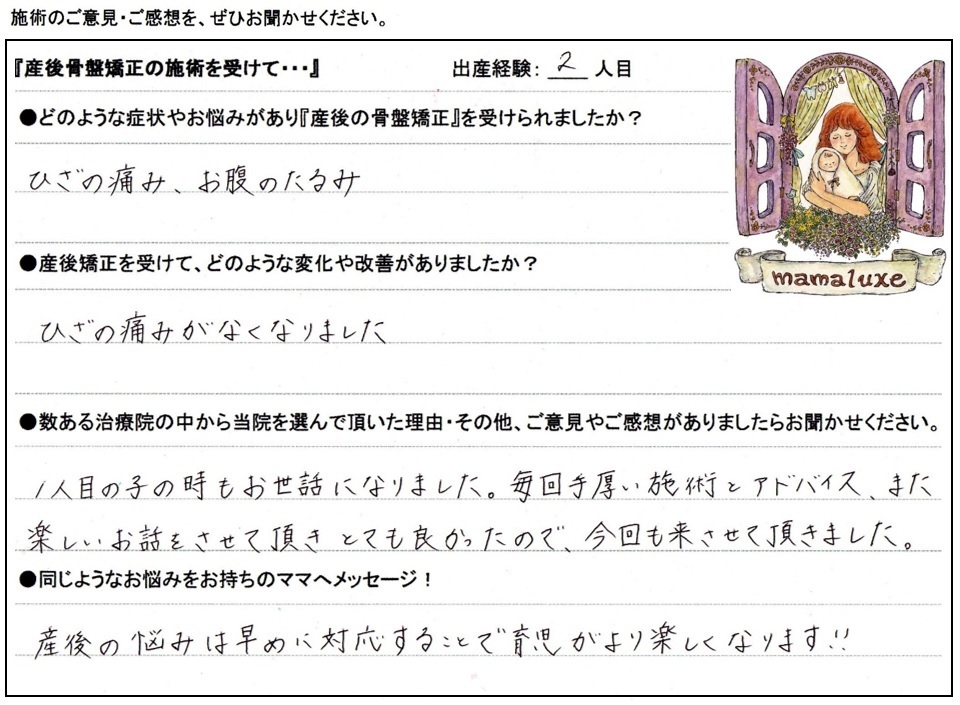 施術のご意見・ご感想を、ぜひお聞かせください。
『産後骨盤矯正の施術を受けて・・・』 出産経験: 2 人目
●どのような症状やお悩みがあり『産後の骨盤矯正』を受けられましたか？
ひざの痛み、お腹のたるみ
●産後矯正を受けて、どのような変化や改善がありましたか？
mamaluxe
ひざの痛みがなくなりました
●数ある治療院の中から当院を選んで頂いた理由・その他、ご意見やご感想がありましたらお聞かせください。
1人目の子の時もお世話になりました。毎回手厚い施術とアドバイス、また
楽しいお話をさせて頂きとても良かったので、今回も来させて頂きました。
●同じようなお悩みをお持ちのママへメッセージ！
産後の悩みは早めに対応することで育児がより楽しくなります!!